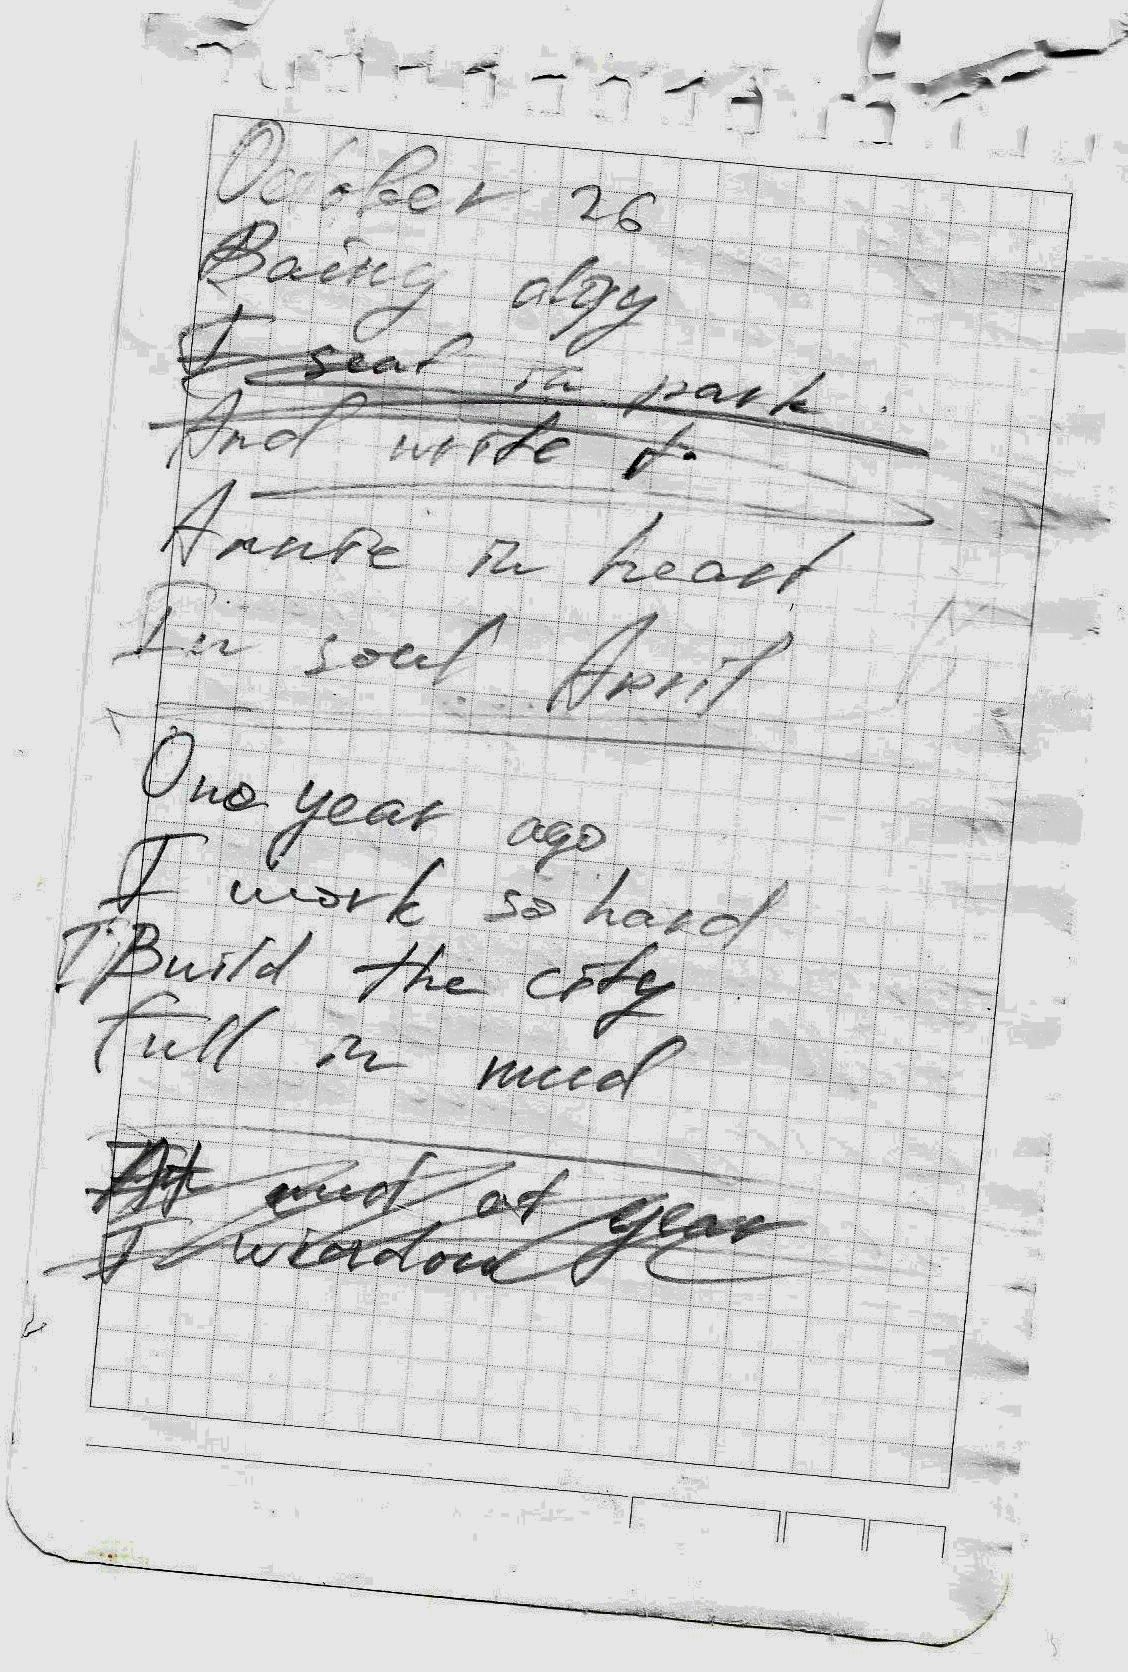 October 26
Baing
I seat in park.
And write
in heart
In soul April
One year ago
I work so hard
I Build the city
Full in mud
At mid of year
I